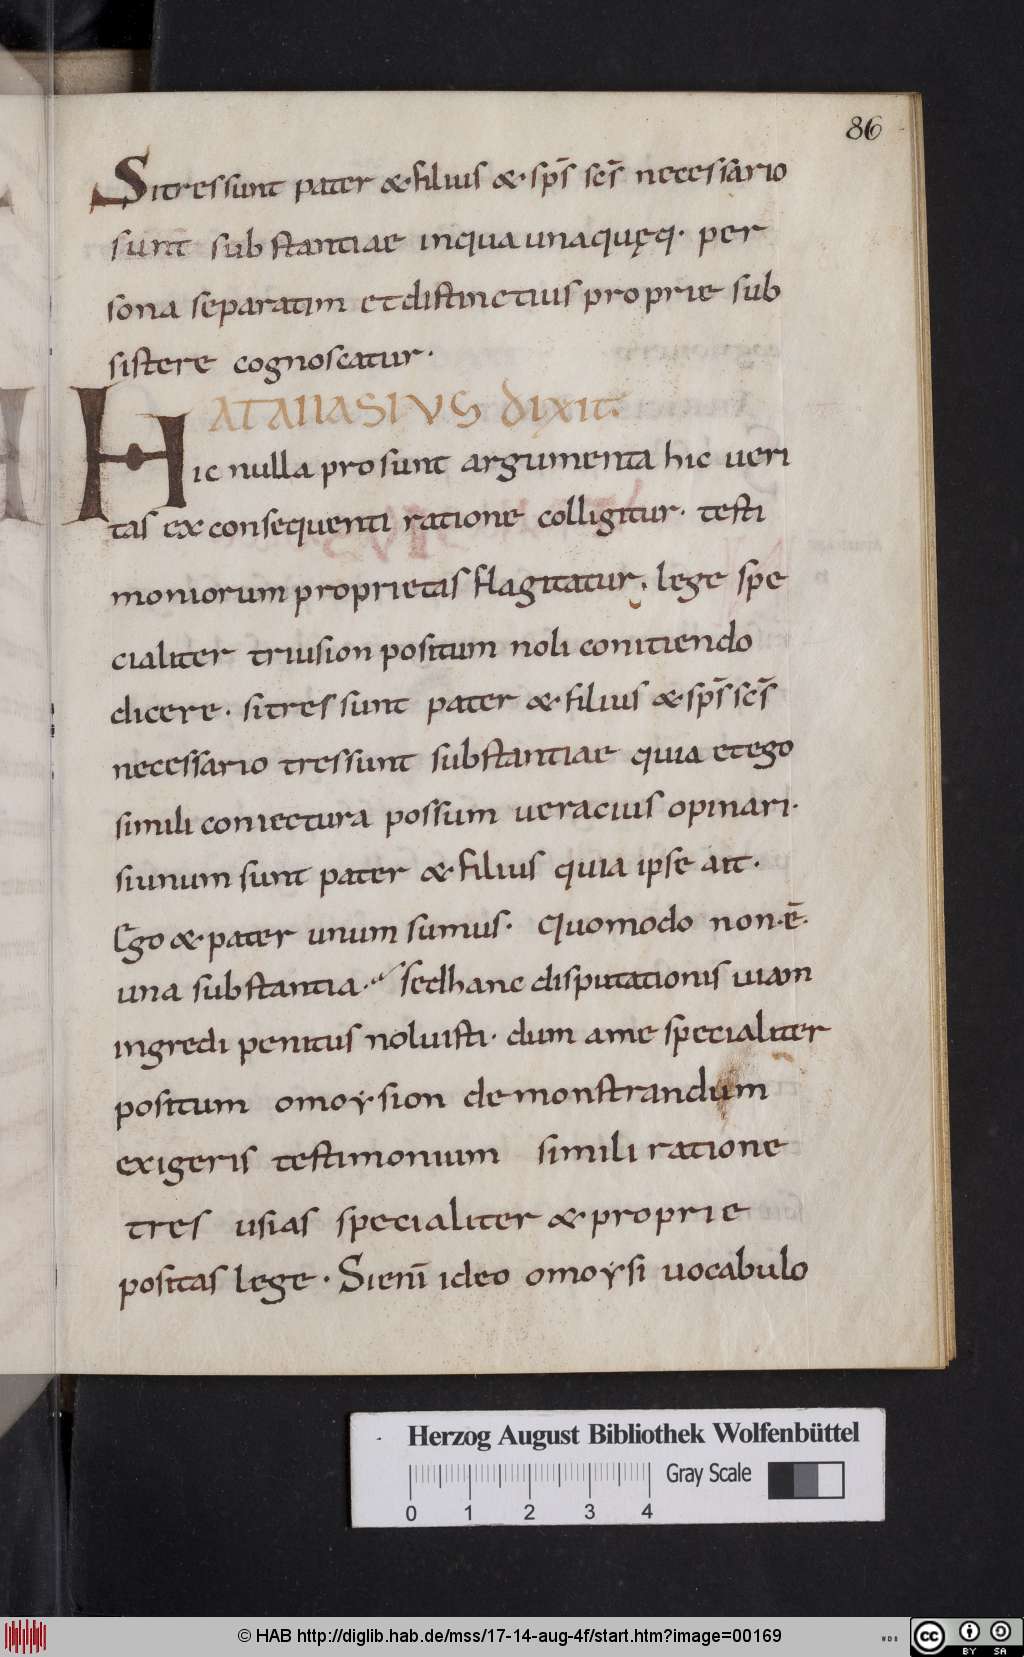 86
Sitressunt pater & filius & sp̄s sc̄s necessario
sunt substantiae inqua unaquęq· per
sona separatim etdistinctius proprie sub
sistere cognoscatur·
ATANASIVS dixit·
Hic nulla prosunt argumenta hic ueri
tas exconsequenti ratione colligitur· testi
moniorum proprietas flagitatur, lege spe
cialiter triusion positum noli conitiendo
dicere· sitressunt pater & filius & sp̄s sc̄s
necessario tressunt substantiae quia etego
simili coniectura possum ueracius opinari·
siunum sunt pater & filius quia ipse ait·
Ego & pater unum sumus· Quomodo non·ē·
una substantia· sedhanc disputationis uiam
ingredi penitus noluisti· dum ame specialiter
positum omoysion demonstrandum
exigeris testimonium simili ratione
tres usias specialiter & proprie
positas lege· Sienī ideo omoysi uocabulo
Herzog August Bibliothek Wolfenbüttel
0 1 2 3 4 Gray Scale
© HAB http://diglib.hab.de/mss/17-14-aug-4f/start.htm?image=00169
WDB
cc BY SA